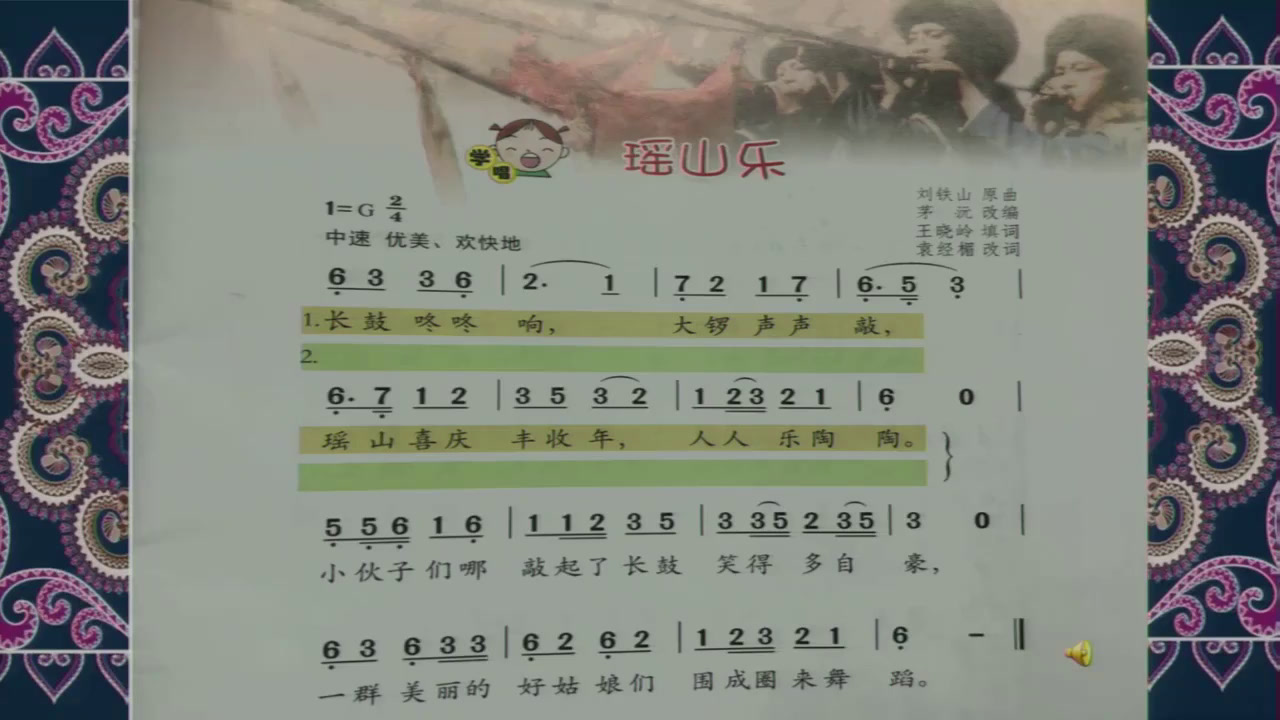 学唱
瑶山乐
1=G 2/4
中速 优美、欢快地
刘铁山 原曲
茅 沅 改编
王晓岭 填词
袁经楣 改词
6 3 3 6 | 2· 1 | 7 2 1 7 | 6· 5 3 |
1.长鼓 咚咚 响， 大锣 声声 敲，
2.
6· 7 1 2 | 3 5 3 2 | 1 2 3 2 1 | 6 0 |
瑶山喜庆 丰收年， 人人 乐陶 陶。
5 5 6 1 6 | 1 1 2 3 5 | 3 3 5 2 3 5 | 3 0 |
小伙子们哪 敲起了长鼓 笑得 多自 豪，
6 3 6 3 3 | 6 2 6 2 | 1 2 3 2 1 | 6 - ‖
一群 美丽的 好姑 娘们 围成圈来舞 蹈。